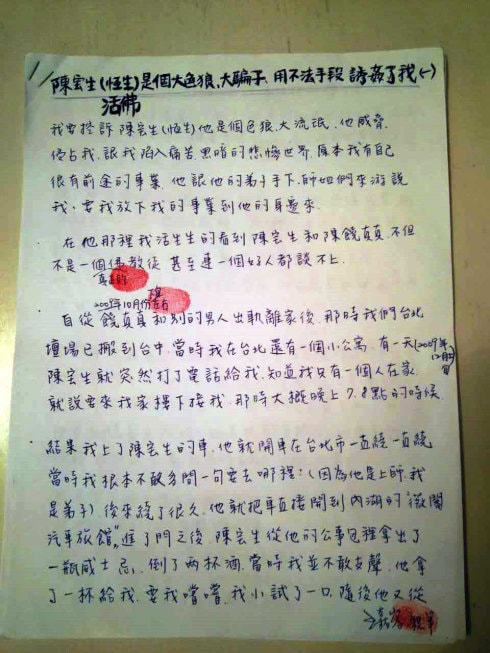 1/
陳宏生(恆生)是個大色狼、大騙子、用不法手段誘姦了我(一)
活佛
我要控訴陳宏生(恆生)他是個色狼、大流氓、他威脅、
侵占我、誤我陷入痛苦、黑暗的悲慘世界。原本我有自己
很有前途的事業、他讓他的弟子手下、師姐們來游說
我、要我放下我的事業到他的身邊來.
在他那裡我活生生的看到陳宏生和陳饒真真、不但
不是一個佛教徒 甚至連一個好人都談不上.
真正的
2009年10月份左右
自從饒真真和別的男人出軌離家後、那時我們台北
壇場已搬到台中、當時我在台北還有一個小公寓、有一天(2009年12月
陳宏生就突然打了電話給我、知道我只有一個人在家
就說要來我家樓下接我、那時大概晚上7.8點的時候.
結果我上了陳宏生的車、他就開車在台北市一直繞一直繞
當時我根本不敢多問一句要去哪裡:(因為他是上師、我
是弟子) 後來繞了很久、他就把車直接開到內湖的"薇閣
汽車旅館"、進了門之後、陳宏生從他的公事包裡拿出了
一瓶威士忌、倒了兩杯酒、當時我並不敢支聲、他拿
了一杯給我、要我嚐嚐、我小試了一口、隨後他又從